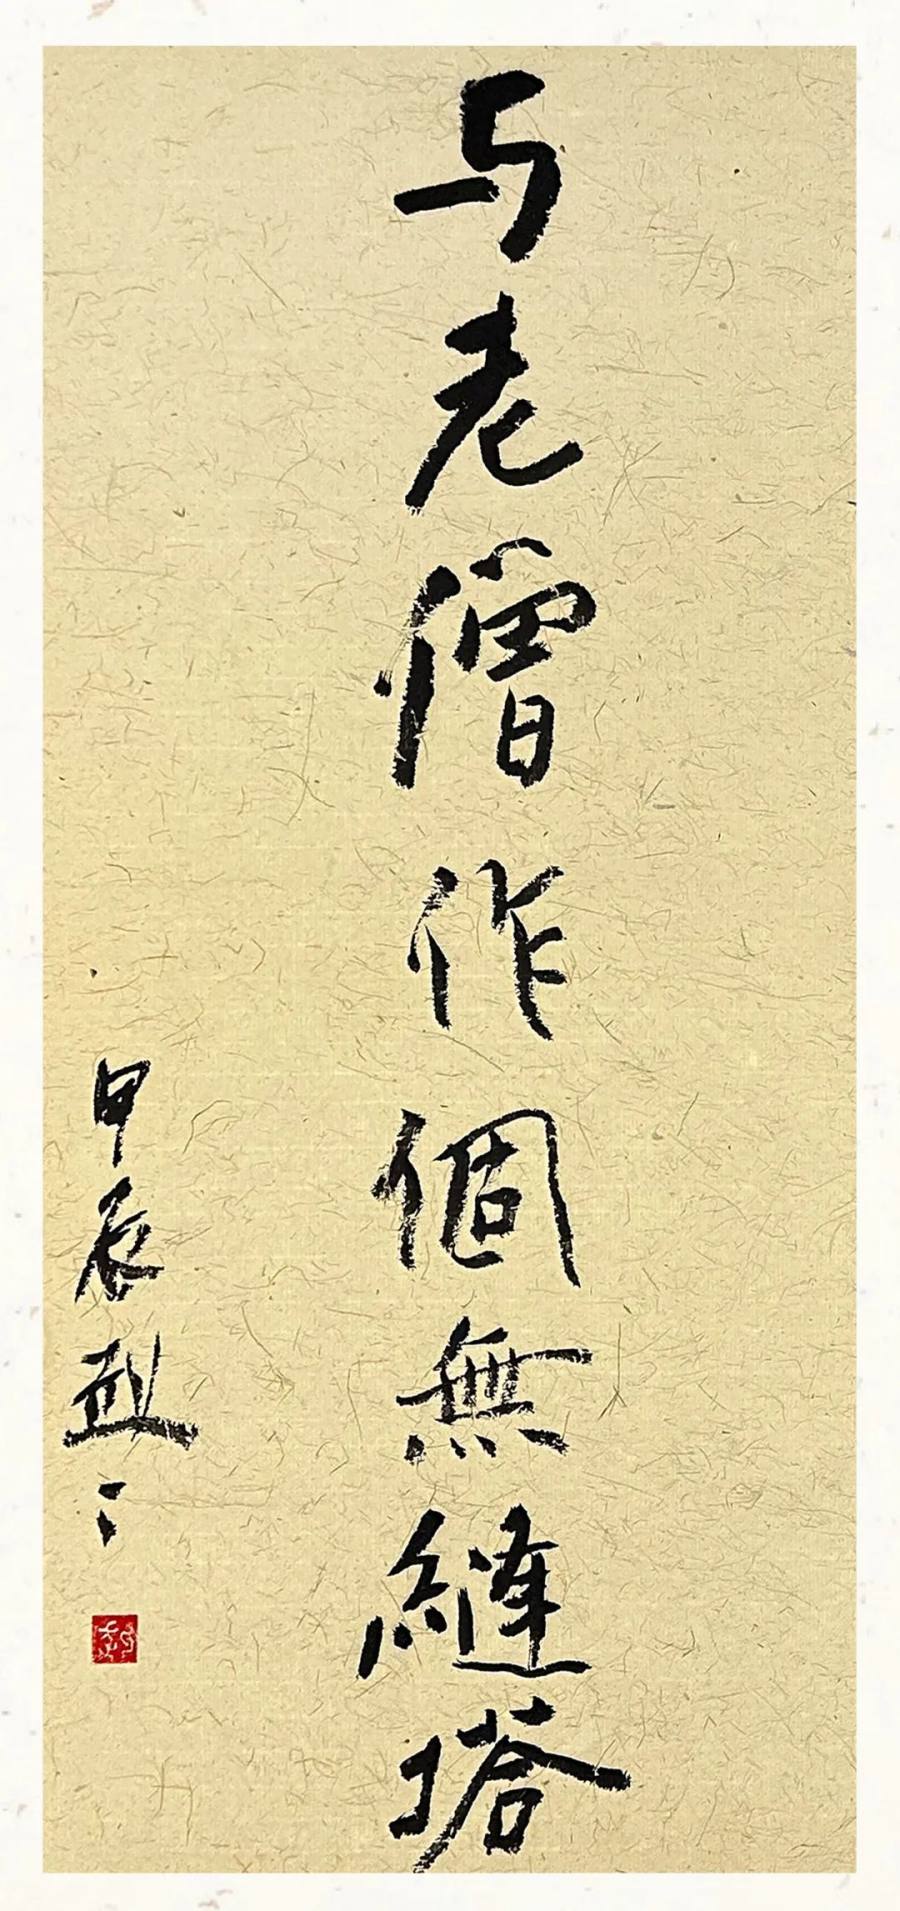 与老僧作個無縫塔
甲辰